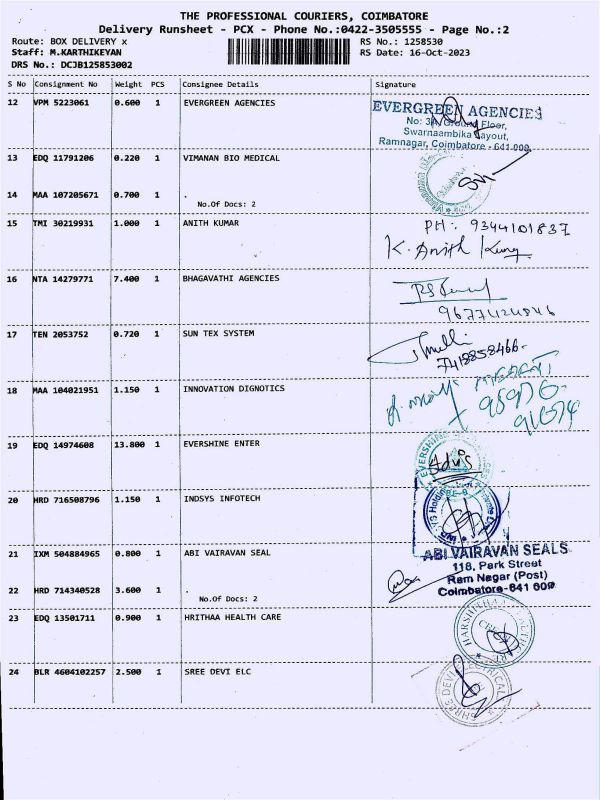 THE PROFESSIONAL COURIERS, COIMBATORE
Delivery Runsheet - PCX - Phone No.:0422-3505555 - Page No.:2
Route: BOX DELIVERY x
RS No.: 1258530
Staff: M.KARTHIKEYAN
RS Date: 16-Oct-2023
DRS No.: DCJB125853002
S No Consignment No Weight PCS Consignee Details Signature
12 VPM 5223061 0.600 1 EVERGREEN AGENCIES
EVERGREEN AGENCIES
Ground Floor,
Swarnaambika Layout,
Ramnagar, Coimbatore - 641 009
13 EDQ 11791206 0.220 1 VIMANAN BIO MEDICAL
14 MAA 107205671 0.700 1 .
No.Of Docs: 2
15 TMI 30219931 1.000 1 ANITH KUMAR
PH: 9344101837
K. Anith Kumar
16 NTA 14279771 7.400 1 BHAGAVATHI AGENCIES
17 TEN 2053752 0.720 1 SUN TEX SYSTEM
7418858466
18 MAA 104021951 1.150 1 INNOVATION DIGNOTICS
19 EDQ 14974608 13.800 1 EVERSHINE ENTER
EVERSHINE
20 HRD 716508796 1.150 1 INDSYS INFOTECH
Holding
21 IXM 504884965 0.800 1 ABI VAIRAVAN SEAL
ABI VAIRAVAN SEALS
118, Park Street
Ram Nagar (Post)
Coimbatore-641 009
22 HRD 714340528 3.600 1 .
No.Of Docs: 2
23 EDQ 13501711 0.900 1 HRITHAA HEALTH CARE
24 BLR 4604102257 2.500 1 SREE DEVI ELC
SHREE DEVI ELECTRICAL